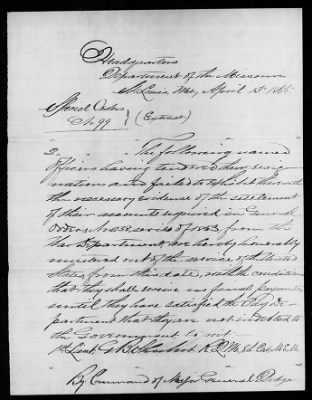 Headquarters
Department of the Missouri
St Louis, Mo, April 15 1865
Special Orders
No 99 (Extract)
2. The following named
officers having tendered their resig-
nations and failed to furnish therewith
the necessary evidence of the settlement
of their accounts required in General
Orders series of 1863 from the
War Department, are hereby honorably
mustered out of the service of the United
States from this date, with the condition
that they shall receive no final payments
until they have satisfied the Pay De-
partment that they are not indebted to
the Government to wit.
1st Lieut. G. B. M. Cav. M.
By Command of Major General Dodge